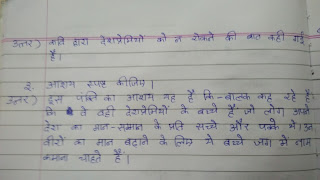 उत्तर) कवि द्वारा देशप्रेमियों को न रोकने की बात कही गई
है।
३. आशय स्पष्ट कीजिए।
उत्तर) इस पंक्ति का आशय यह है कि - बालक कह रहे है
कि वे वही देशप्रेमियों के बच्चे है जो लोग अपने
देश का मान-सम्मान के प्रति सच्चे और पक्के थे। उन
वीरों का मान बढ़ाने के लिए ये बच्चे जग में नाम
कमाना चाहते है।